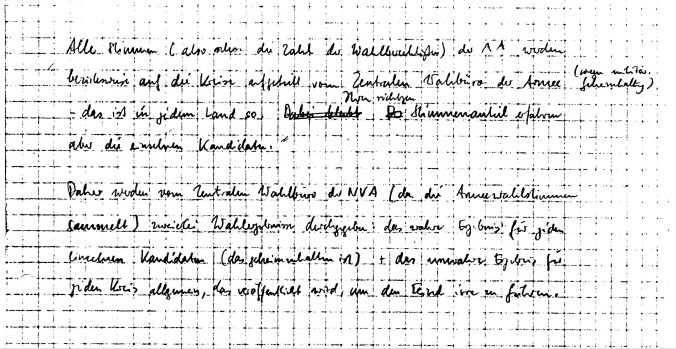 Alle Stimmen (also oder: die Zahl der Wahlberechtigten) der NA werden
beziehensweise auf die Kreise aufgeteilt vom Zentralen Wahlbüro der Armee (wegen militär. Geheimhaltung).
- das ist in jedem Land so. Ihren richtigen Stimmenanteil erfahren
aber die einzelnen Kandidaten.
Daher werden vom Zentralen Wahlbüro der NVA (da die Armeewahlstimmen
sammelt) zweierlei Wahlergebnisse durchgegeben: das wahre Ergebnis für jeden
einzelnen Kandidaten (das geheimzuhalten ist) + das unwahre Ergebnis für
jeden Kreis allgemein, das veröffentlicht wird, um den Feind irre zu führen.